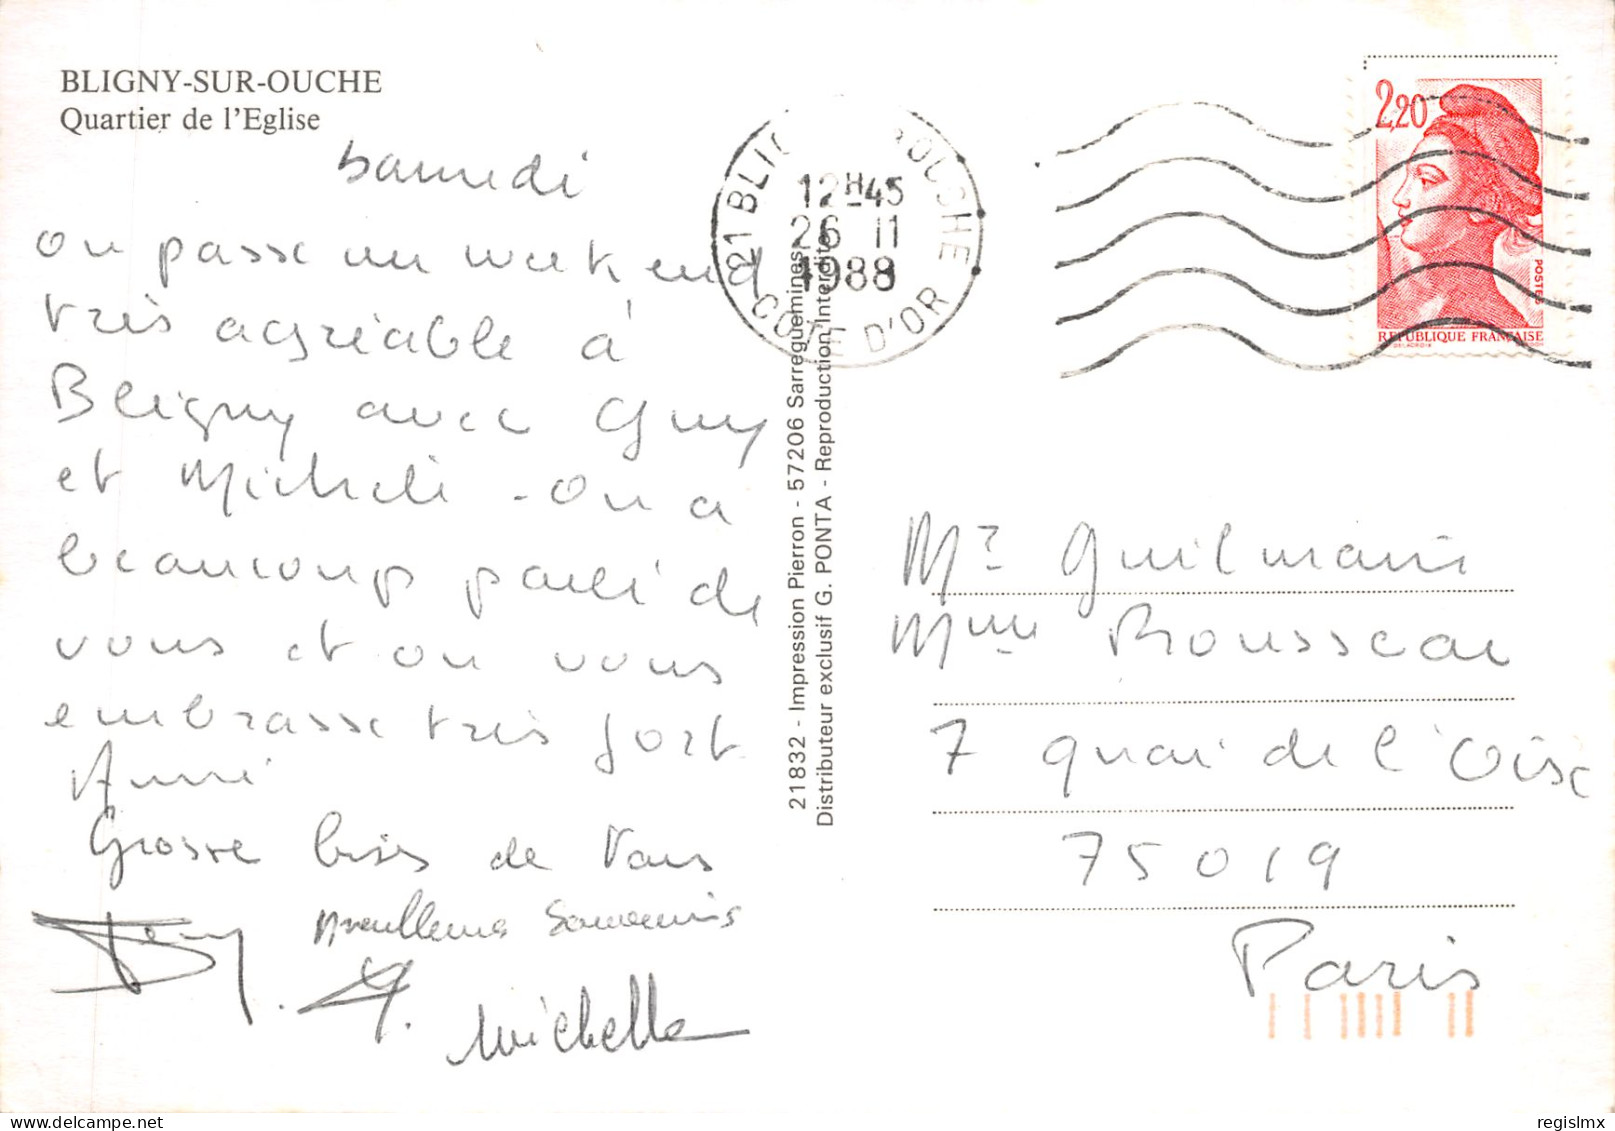 BLIGNY-SUR-OUCHE
Quartier de l'Eglise
Samedi
on passe un week end
très agréable à
Bligny avec Guy
et Michele - On a
beaucoup parlé de
vous et on vous
embrasse très fort
Anne
Grosse bises de
Meilleurs Souvenirs
Michelle
21832 - Impression Pierron - 57206 Sarreguemines
Distributeur exclusif G. PONTA - Reproduction Interdite
21 BLIGNY OUCHE
12H45
26 11
1988
COTE D'OR
2,20
POSTES
REPUBLIQUE FRANÇAISE
Mr Guilmain
Mme Rousseau
7 quai de l'Oise
75019
Paris
regislmx